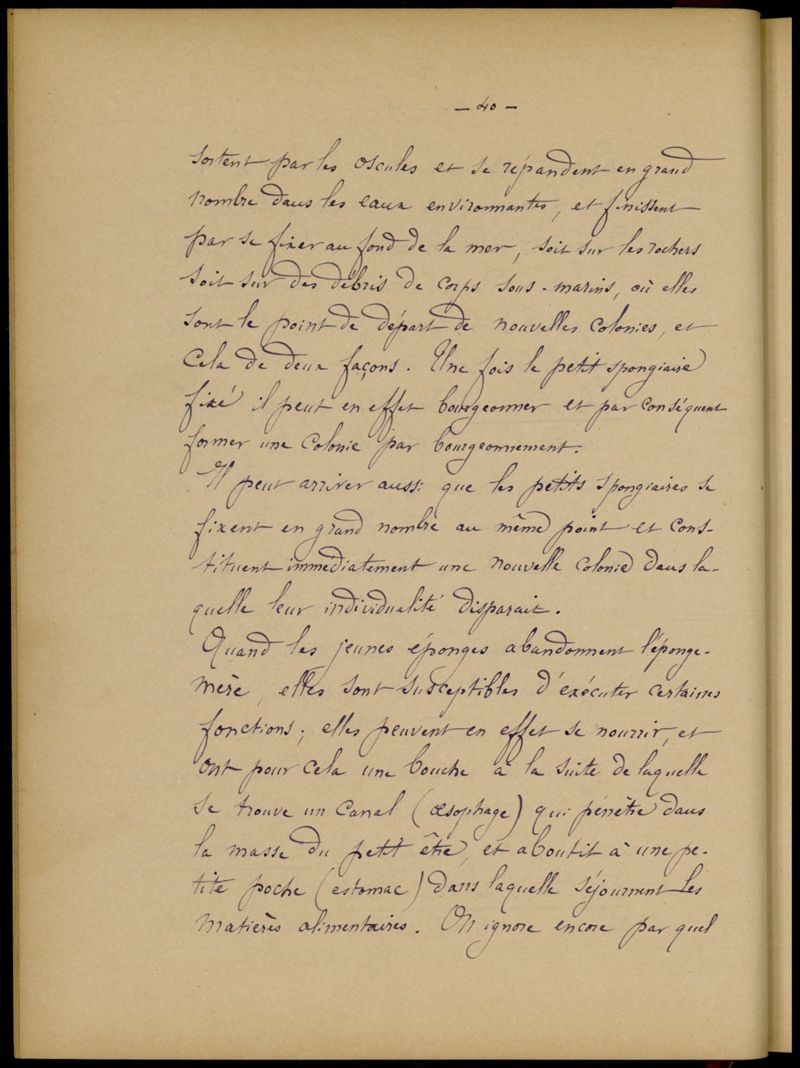 — 40 —
sortent par les oscules et se répandent en grand
nombre dans les eaux environnantes, et finissent
par se fixer au fond de la mer, soit sur les rochers
soit sur des débris de corps sous-marins, où elles
sont le point de départ de nouvelles colonies, et
cela de deux façons. Une fois le petit spongiaire
fixé il peut en effet bourgeonner et par conséquent
former une colonie par bourgeonnement.
Il peut arriver aussi que les petits spongiaires se
fixent en grand nombre au même point et cons-
tituent immédiatement une nouvelle colonie dans la-
quelle leur individualité disparait.
Quand les jeunes éponges abandonnent l'éponge-
mère, elles sont susceptibles d'exécuter certaines
fonctions; elles peuvent en effet se nourrir, et
ont pour cela une bouche à la suite de laquelle
se trouve un canal (œsophage) qui pénètre dans
la masse du petit être, et aboutit à une pe-
tite poche (estomac) dans laquelle séjournent les
matières alimentaires. On ignore encore par quel